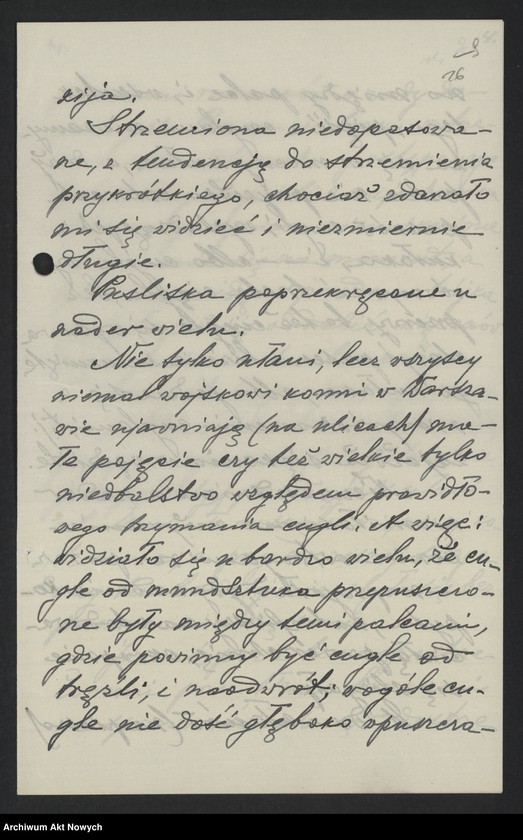 9
26
xija.
Strzemiona niedopasowa-
ne, z tendencją do strzemienia
przykrótkiego, chociaż zdarzało
mi się widzieć i niezmiernie
długie.
Puśliska poprzekręcane u
nader wielu.
Nie tylko ułani, lecz wszyscy
niemal wojskowi konni w Warsza-
wie ujawniają (na ulicach) ma-
łe pojęcie czy też wielkie tylko
niedbalstwo względem prawidło-
wego trzymania cugli. A więc:
widziało się u bardzo wielu, że cu-
gle od munsztuka przepuszczo-
ne były między temi palcami,
gdzie powinny być cugle od
tręzli, i naodwrót; wogóle cu-
gle nie dość głęboko wpuszcza-
Archiwum Akt Nowych